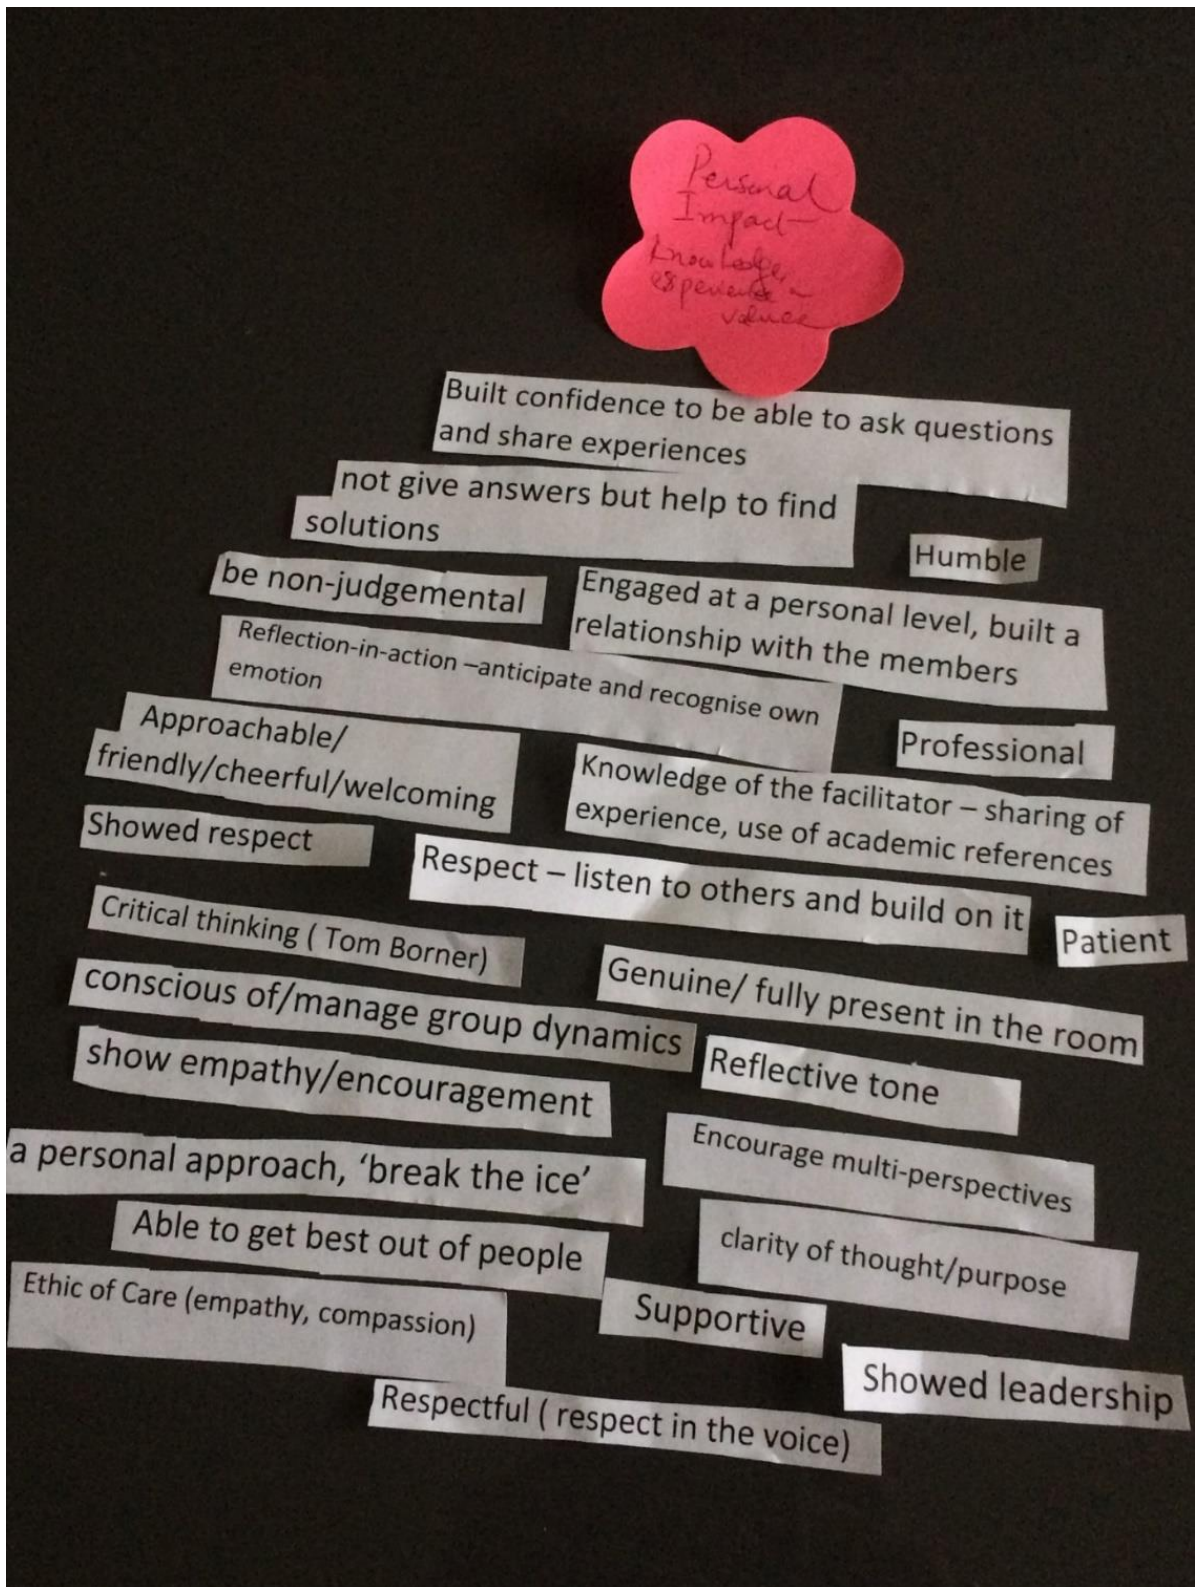 Personal
Impact
knowledge,
experience
values
Built confidence to be able to ask questions
and share experiences
not give answers but help to find
solutions
Humble
be non-judgemental
Engaged at a personal level, built a
relationship with the members
Reflection-in-action –anticipate and recognise own
emotion
Professional
Approachable/
friendly/cheerful/welcoming
Knowledge of the facilitator – sharing of
experience, use of academic references
Showed respect
Respect – listen to others and build on it
Patient
Critical thinking ( Tom Borner)
Genuine/ fully present in the room
conscious of/manage group dynamics
Reflective tone
show empathy/encouragement
Encourage multi-perspectives
a personal approach, ‘break the ice’
clarity of thought/purpose
Able to get best out of people
Ethic of Care (empathy, compassion)
Supportive
Showed leadership
Respectful ( respect in the voice)